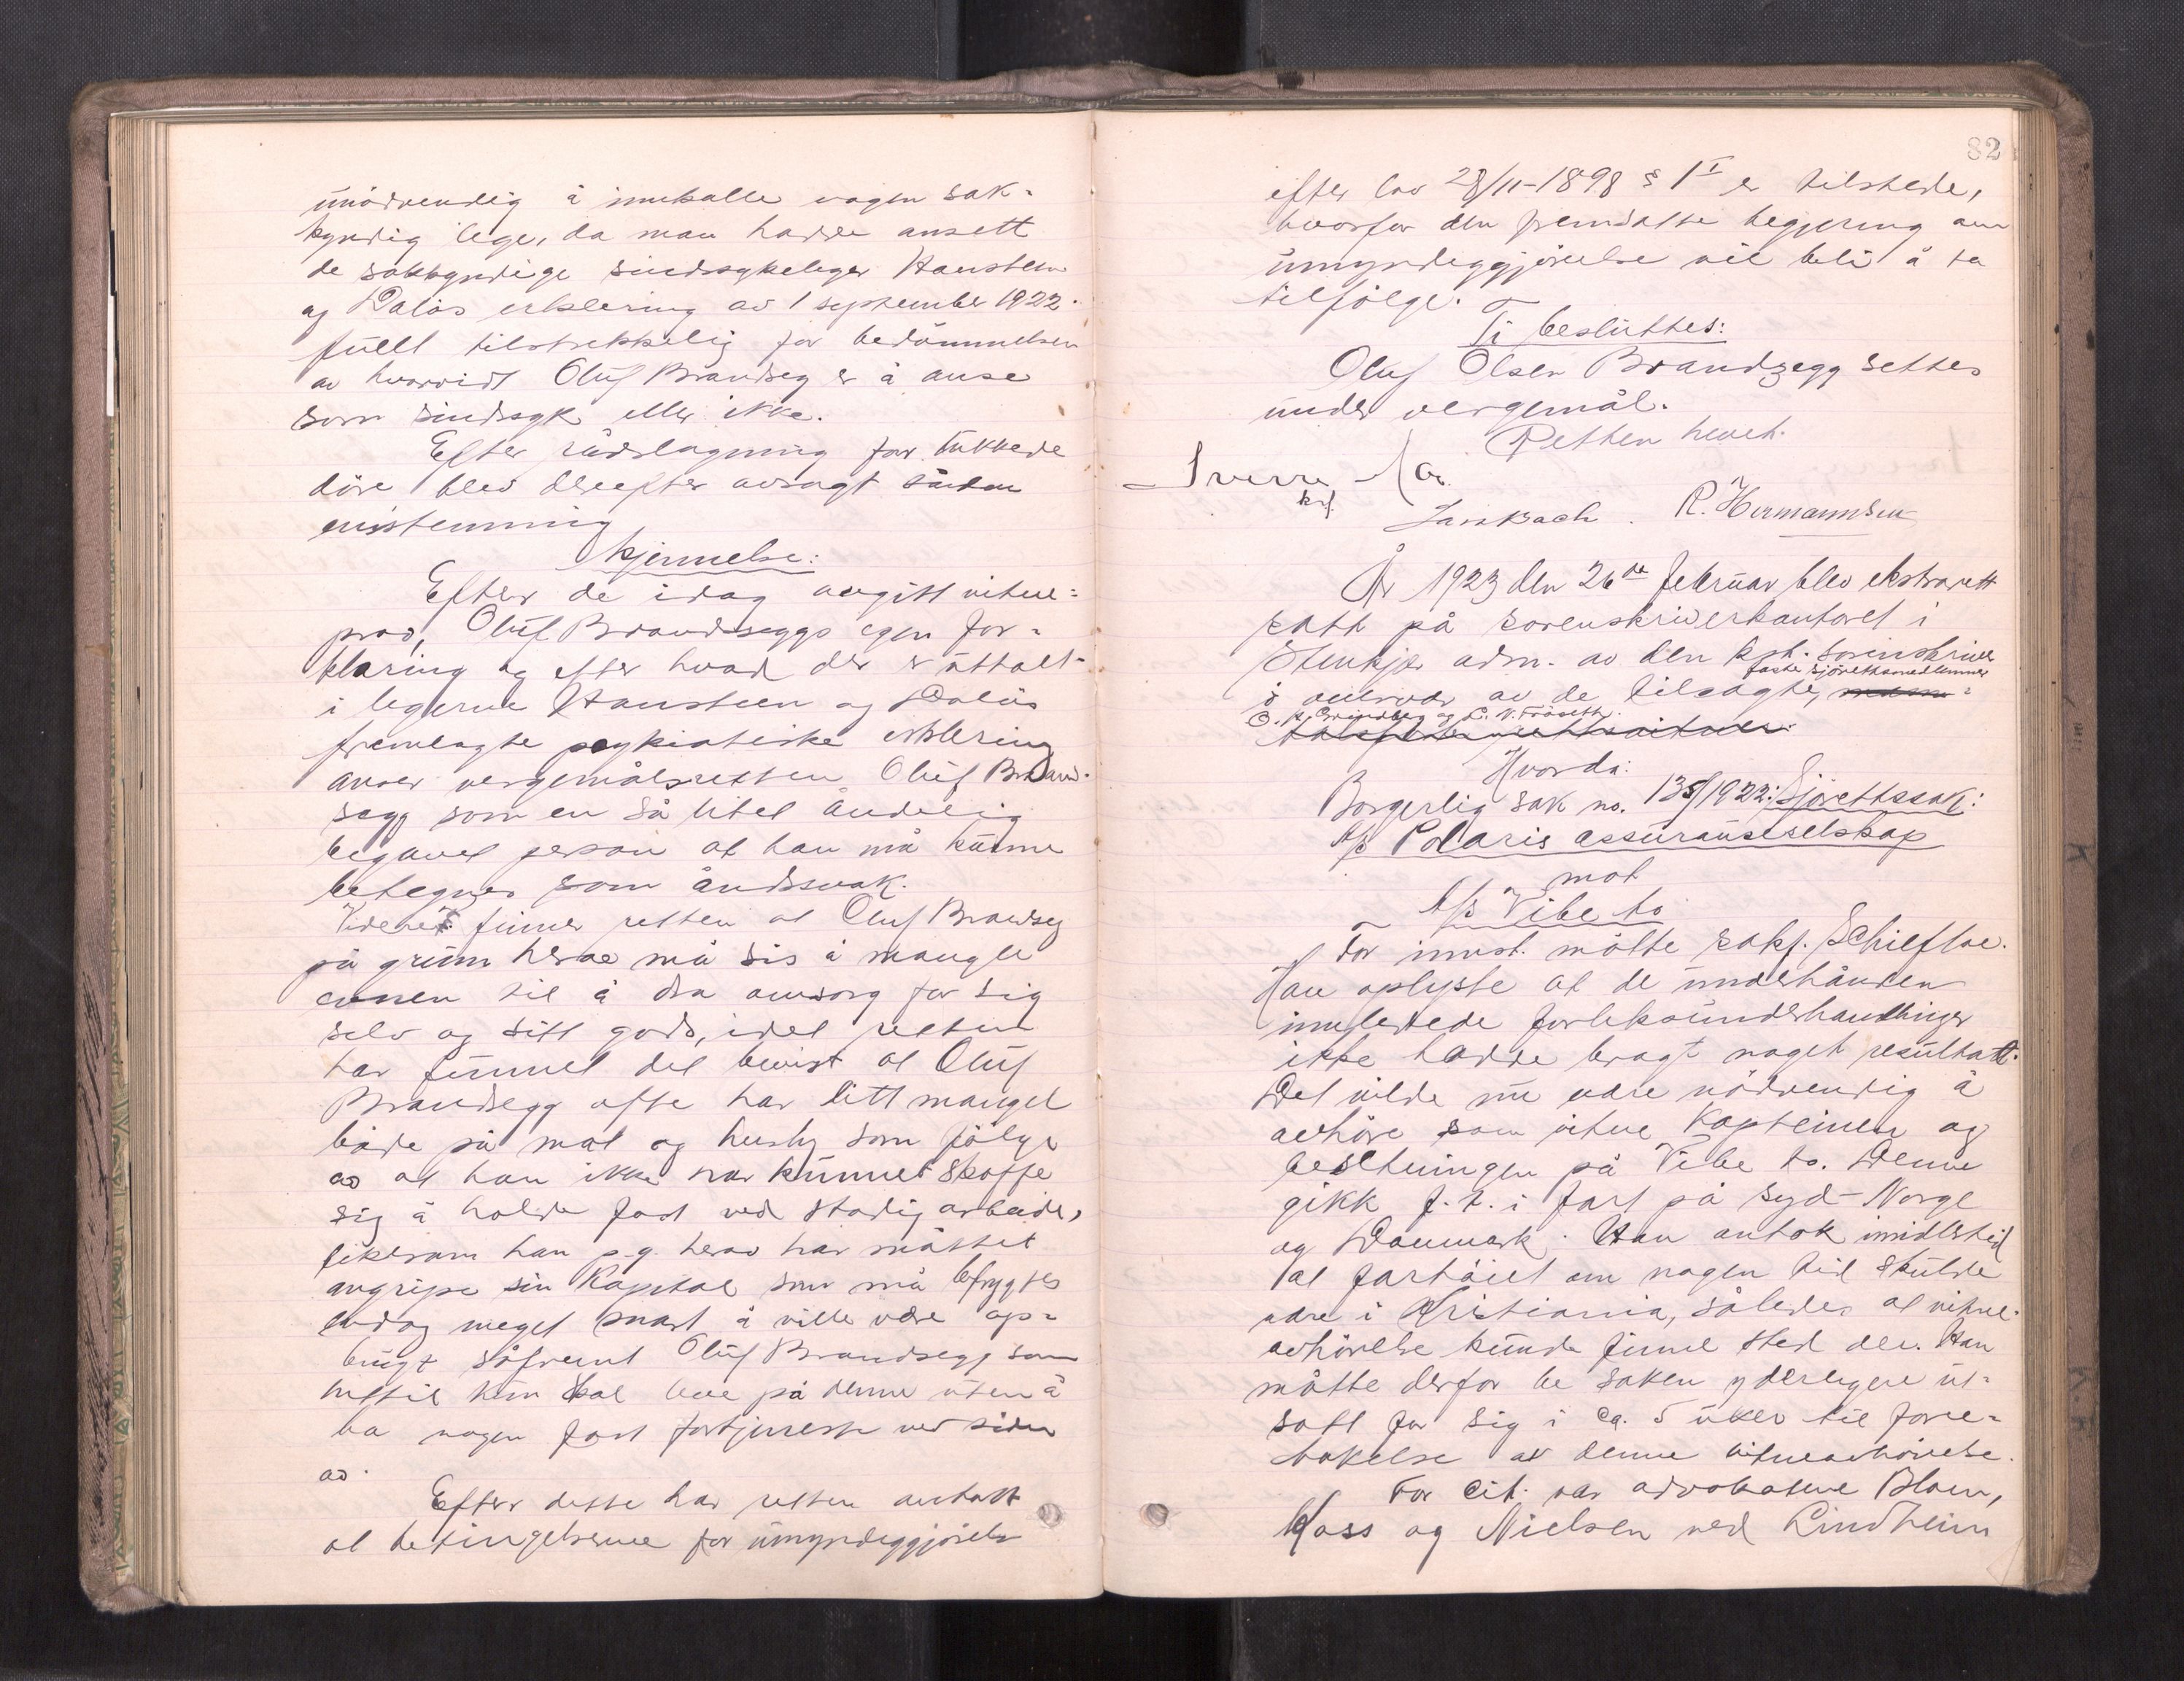 unødvendig å innkalle nogen sak-
kyndig lege, da man hadde ansett
de sakkyndige sindssykeleger Hansteen
og Daløs erklæring av 1 september 1922
fullt tilstrekkelig for bedømmelsen
av hvorvidt Oluf Brandseg er å anse
som sindssyk eller ikke.
Efter rådslagning for lukkede
døre blev derefter avsagt sådan
enstemmig
kjennelse:
Efter de idag avgitt vitne-
prov, Oluf Brandseggs egen for-
klaring og efter hvad der er uttalt
i legerne Hansteen og Daløs
fremlagte psykiatriske erklering
anser vergemålsretten Oluf Brand-
segg som en så litet åndelig
begavet person at han må kunne
betegnes som åndssvak.
Videre finner retten at Oluf Brandseg
på grunn herav må sis å mangle
evnen til å dra omsorg for sig
selv og sitt gods, idet retten
har funnet det bevist at Oluf
Brandsegg ofte har litt mangel
både på mat og husly som følge
av at han ikke har kunnet skaffe
sig å holde fast ved stadig arbeide,
likesom han p.g. herav har måttet
angripe sin Kapital som må befryktes
endog meget snart å ville være op-
brugt såfremt Oluf Brandsegg som
hittil hun skal leve på denne uten å
ha nogen fast fortjeneste ved siden
av.
Efter dette har retten antatt
at betingelserne for umyndiggjørelse
82
efter lov 28/11-1898 § 1 I er tilstede,
hvorfor den fremsatte begjering om
umyndiggjørelse vil bli å ta
tilfølge.
Ti besluttes:
Oluf Olsen Brandzegg settes
under vergemål.
Retten hevet.
Sverre
kst
R. Hermannsen
År 1923 den 26de februar blev ekstrarett
satt på sorenskriverkontoret i
Stenkjer adm. av den kst. sorenskriver
faste sjørettsmedlemmer
i overvær av de tilsagte,
O. A. Grindberg og L. N. Frøseth.
Hvorda:
Borgerlig sak no. 135/1922: Sjørettssak:
A/S Polaris assuranseselskap
mot
A/S Vibe to
For innst. møtte sakf. Schieftoe.
Han oplyste at de underhånden
innledede forliksunderhandlinger
ikke hadde bragt noget resultatt.
Det vilde nu være nødvendig å
avhøre som vitne Kapteinen og
besetningen på Vibe to. Denne
gikk f.t. i fart på Syd-Norge
og Danmark. Han antok imidlertid
at fartøiet om nogen tid skulde
være i Kristiania, således at vitne-
avhørelse kunde finne sted der. Han
måtte derfor be saken yderligere ut-
satt for sig i ca. 5 uker til fore-
takelse av denne vitneavhørelse.
For cit. var advokatene Blom,
Hass og Nielsen ved Lindheim